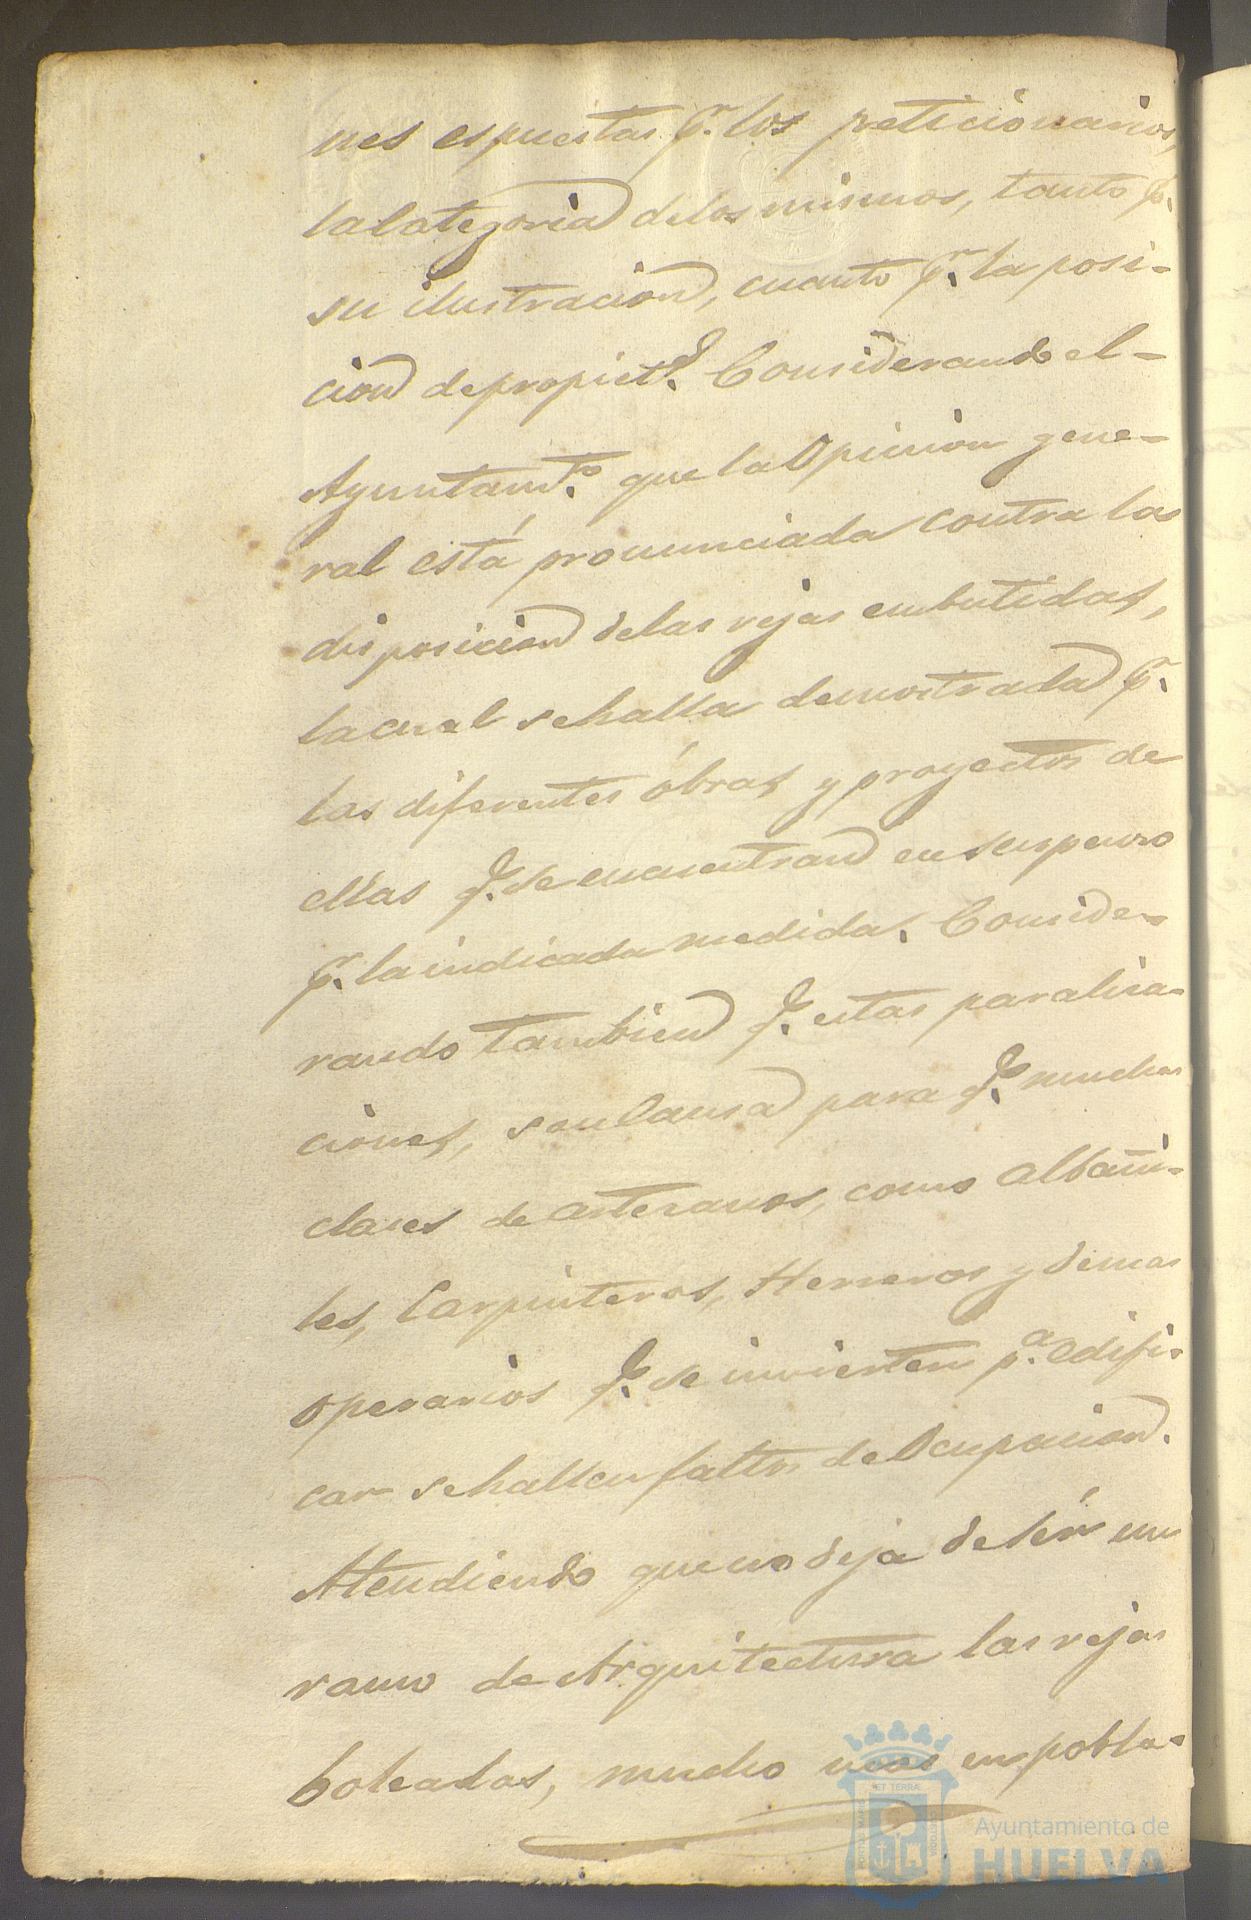 nes espuestas p.r los peticionarios,
la Categoria de los mismos, tanto p.r
su ilustracion, cuanto p.r la posi-
cion de propiet.s Considerando el-
Ayuntam.to que la Opinion gene-
ral está pronunciada contra la
disposicion de las rejas embutidas,
la cual se halla demostrada p.r
las diferentes óbras y proyectos de
ellas q.e se encuentran en suspenso
p.r la indicada medida. Conside-
rando tambien q.e estas paralisa-
ciones, son Causa para q.e muchas
clases de artesanos, como albañi-
les, Carpinteros, Herreros y demas
operarios q.e se invierten p.a edifi-
car se hallen faltos de Ocupacion.
Atendiendo que no deja de sér un
ramo de Arquitectura las rejas
boleadas, mucho mas en pobla-
PORTUS MARIS
ET TERRAE
CUSTODIA
Ayuntamiento de
HUELVA